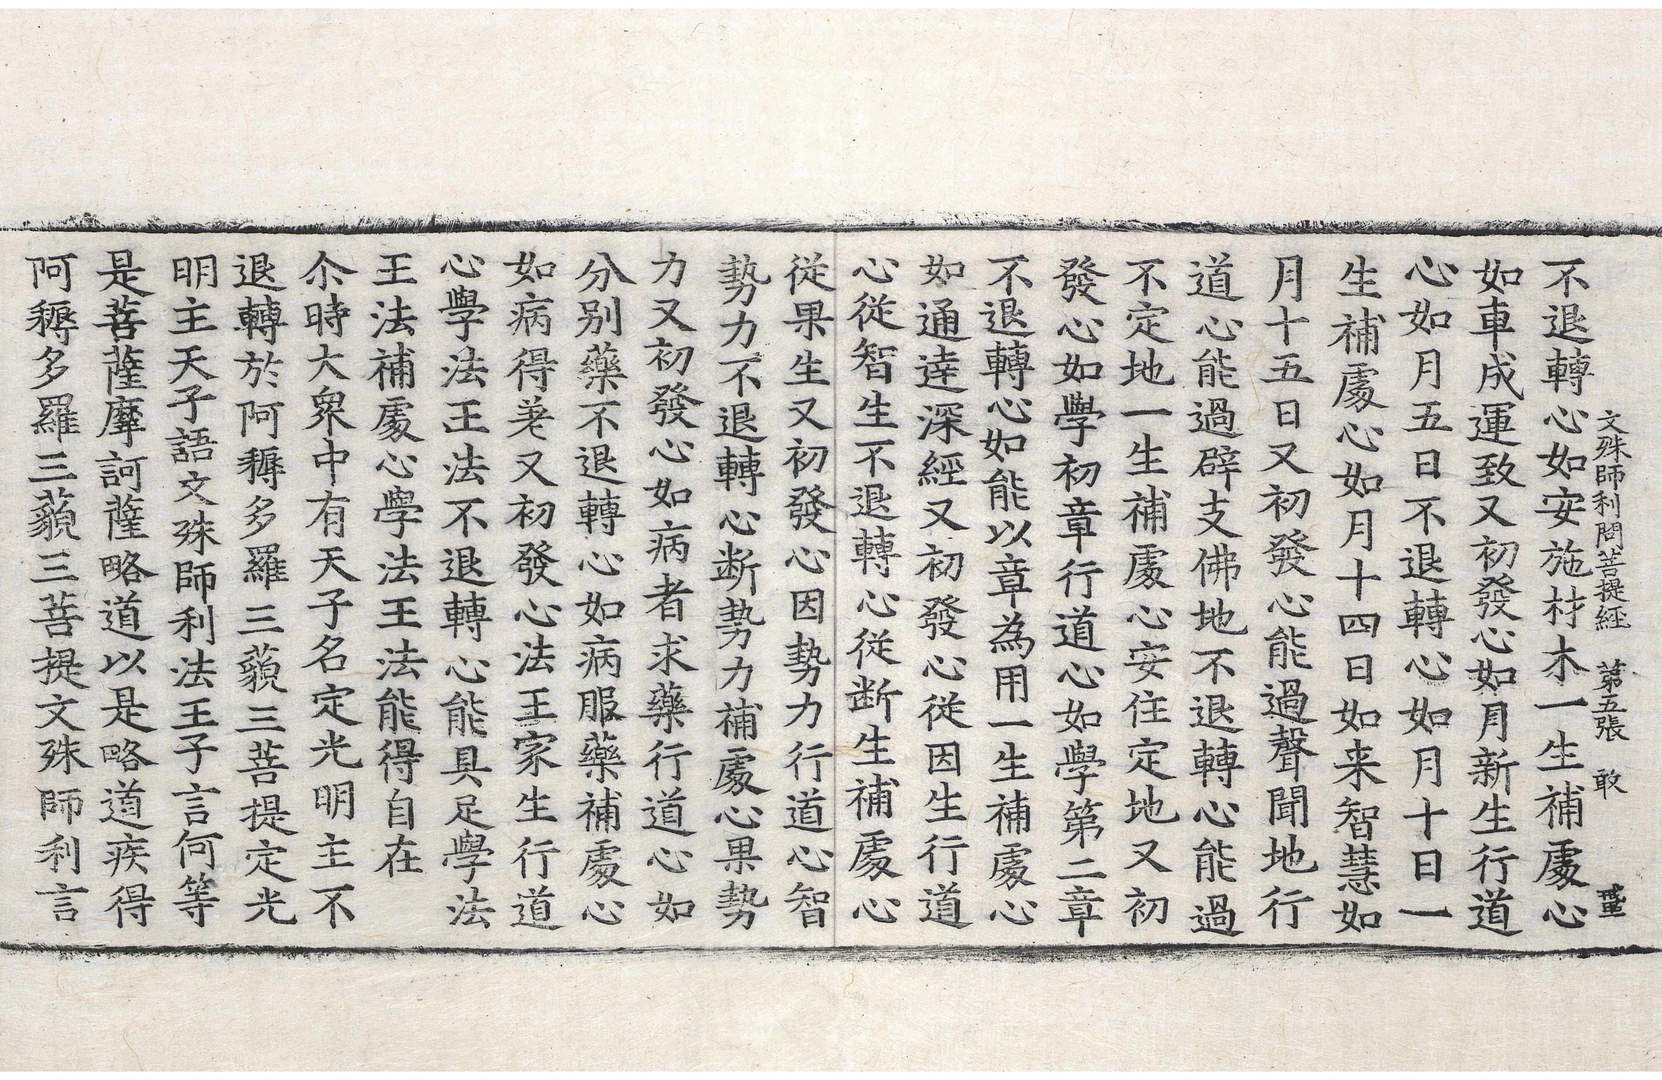 文殊師利問菩提經 第五張 敢
不退轉心如安施材木一生補處心
如車成運致又初發心如月新生行道
心如月五日不退轉心如月十日一
生補處心如月十四日如来智慧如
月十五日又初發心能過聲聞地行
道心能過辟支佛地不退轉心能過
不定地一生補處心安住定地又初
發心如學初章行道心如學第二章
不退轉心如能以章為用一生補處心
如通達深經又初發心從因生行道
心從智生不退轉心從断生補處心
從果生又初發心因勢力行道心智
勢力不退轉心断勢力補處心果勢
力又初發心如病者求藥行道心如
分别藥不退轉心如病服藥補處心
如病得差又初發心法王家生行道
心學法王法不退轉心能具足學法
王法補處心學法王法能得自在
尒時大衆中有天子名定光明主不
退轉於阿耨多羅三藐三菩提定光
明主天子語文殊師利法王子言何等
是菩薩摩訶薩略道以是略道疾得
阿耨多羅三藐三菩提文殊師利言